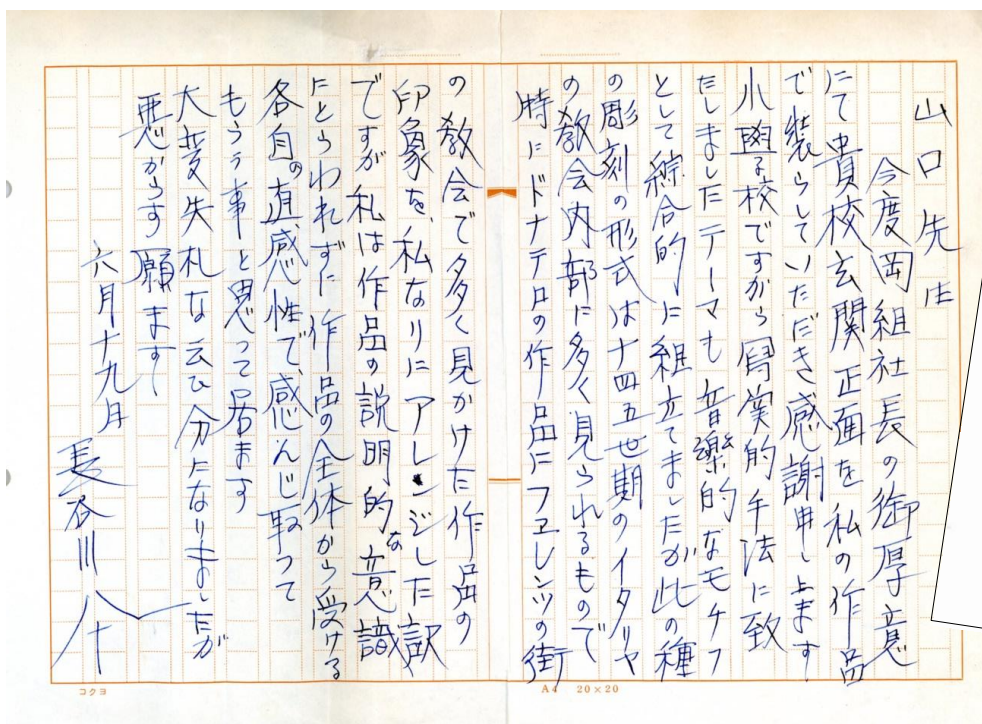 山口先生
今度岡組社長の御厚意
にて貴校玄関正面を私の作品
で装らしていただき感謝申し上ます
小學校ですから写実的手法に致
たしましたテーマも音楽的なモチフ
として綜合的に組立てましたが此の種
の彫刻の形式は十四五世期のイタリヤ
の教会内部に多く見られるもので
時にドナテロの作品にフヱレンツの街
の教会で多く見かけた作品の
印象を、私なりにアレンジした訳
ですが私は作品の説明的な意識
にとらわれずに作品の全体から受ける
各自の直感性で、感んじ取って
もらう事と思って居ます
大変失礼な云ひ分になりましたが
悪からず願ます
六月十九日
長谷川八十
コクヨ
A4 20×20